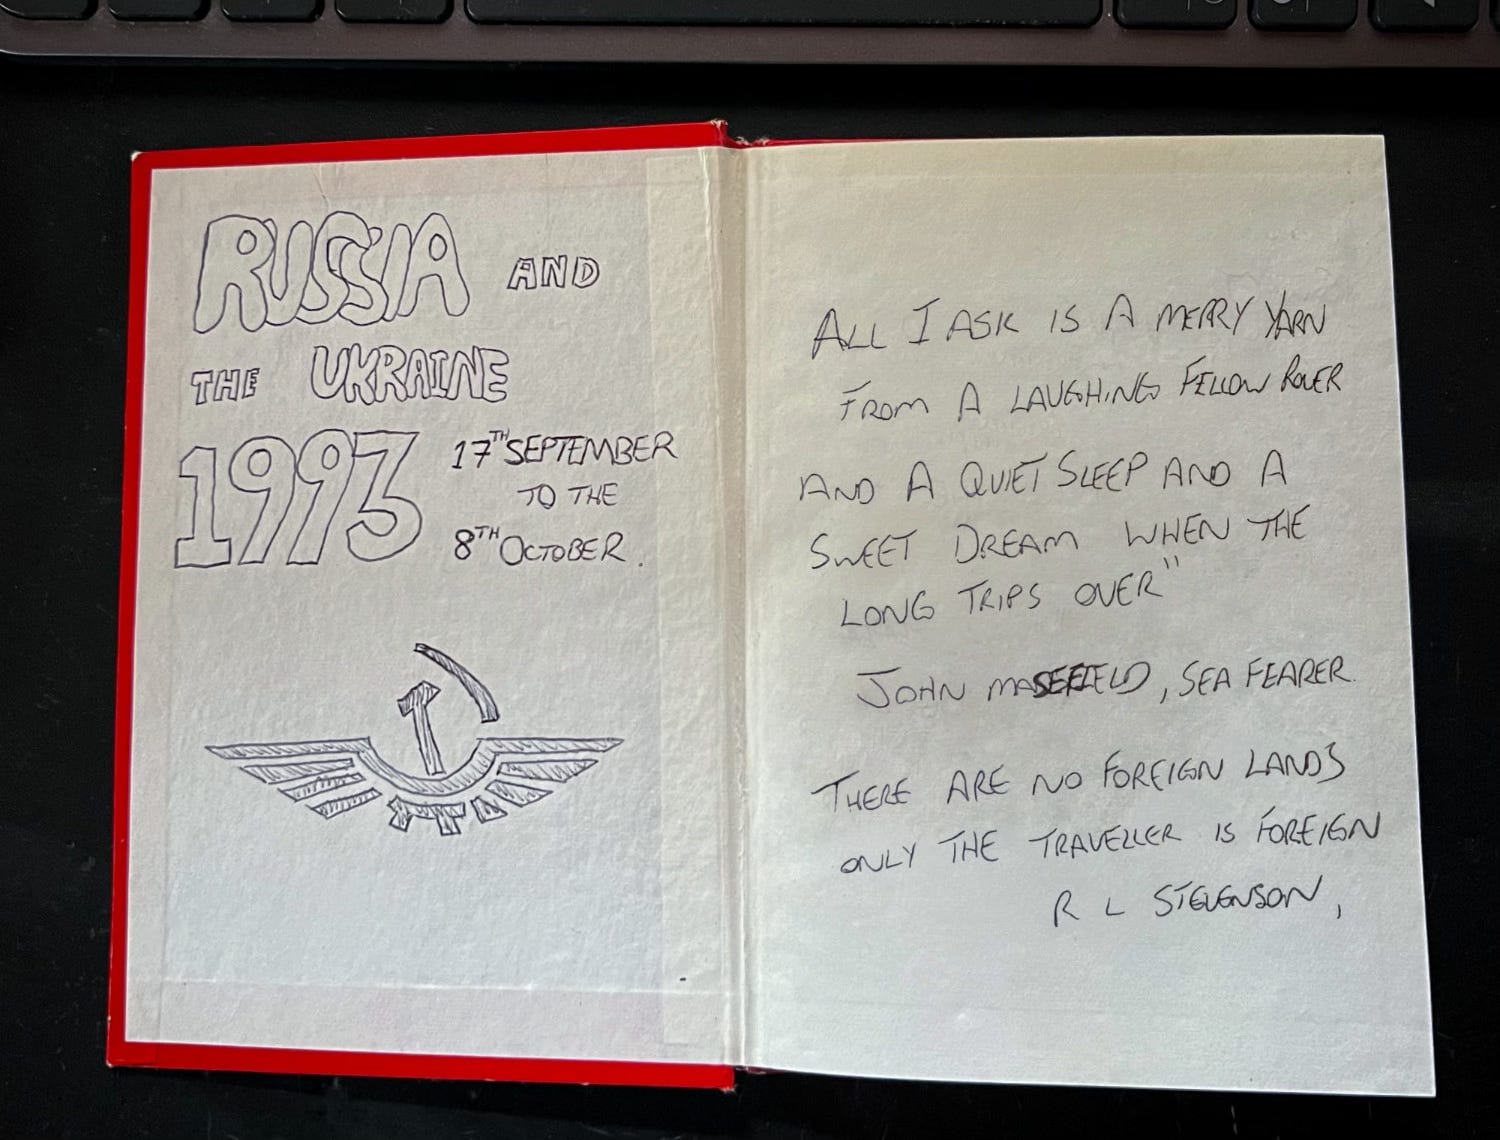 RUSSIA AND
THE UKRAINE
1993
17TH SEPTEMBER
TO THE
8TH OCTOBER.
ALL I ASK IS A MERRY YARN
FROM A LAUGHING FELLOW ROVER
AND A QUIET SLEEP AND A
SWEET DREAM WHEN THE
LONG TRIPS OVER"
JOHN MASEFIELD, SEA FEARER.
THERE ARE NO FOREIGN LANDS
ONLY THE TRAVELLER IS FOREIGN
R L STEVENSON,